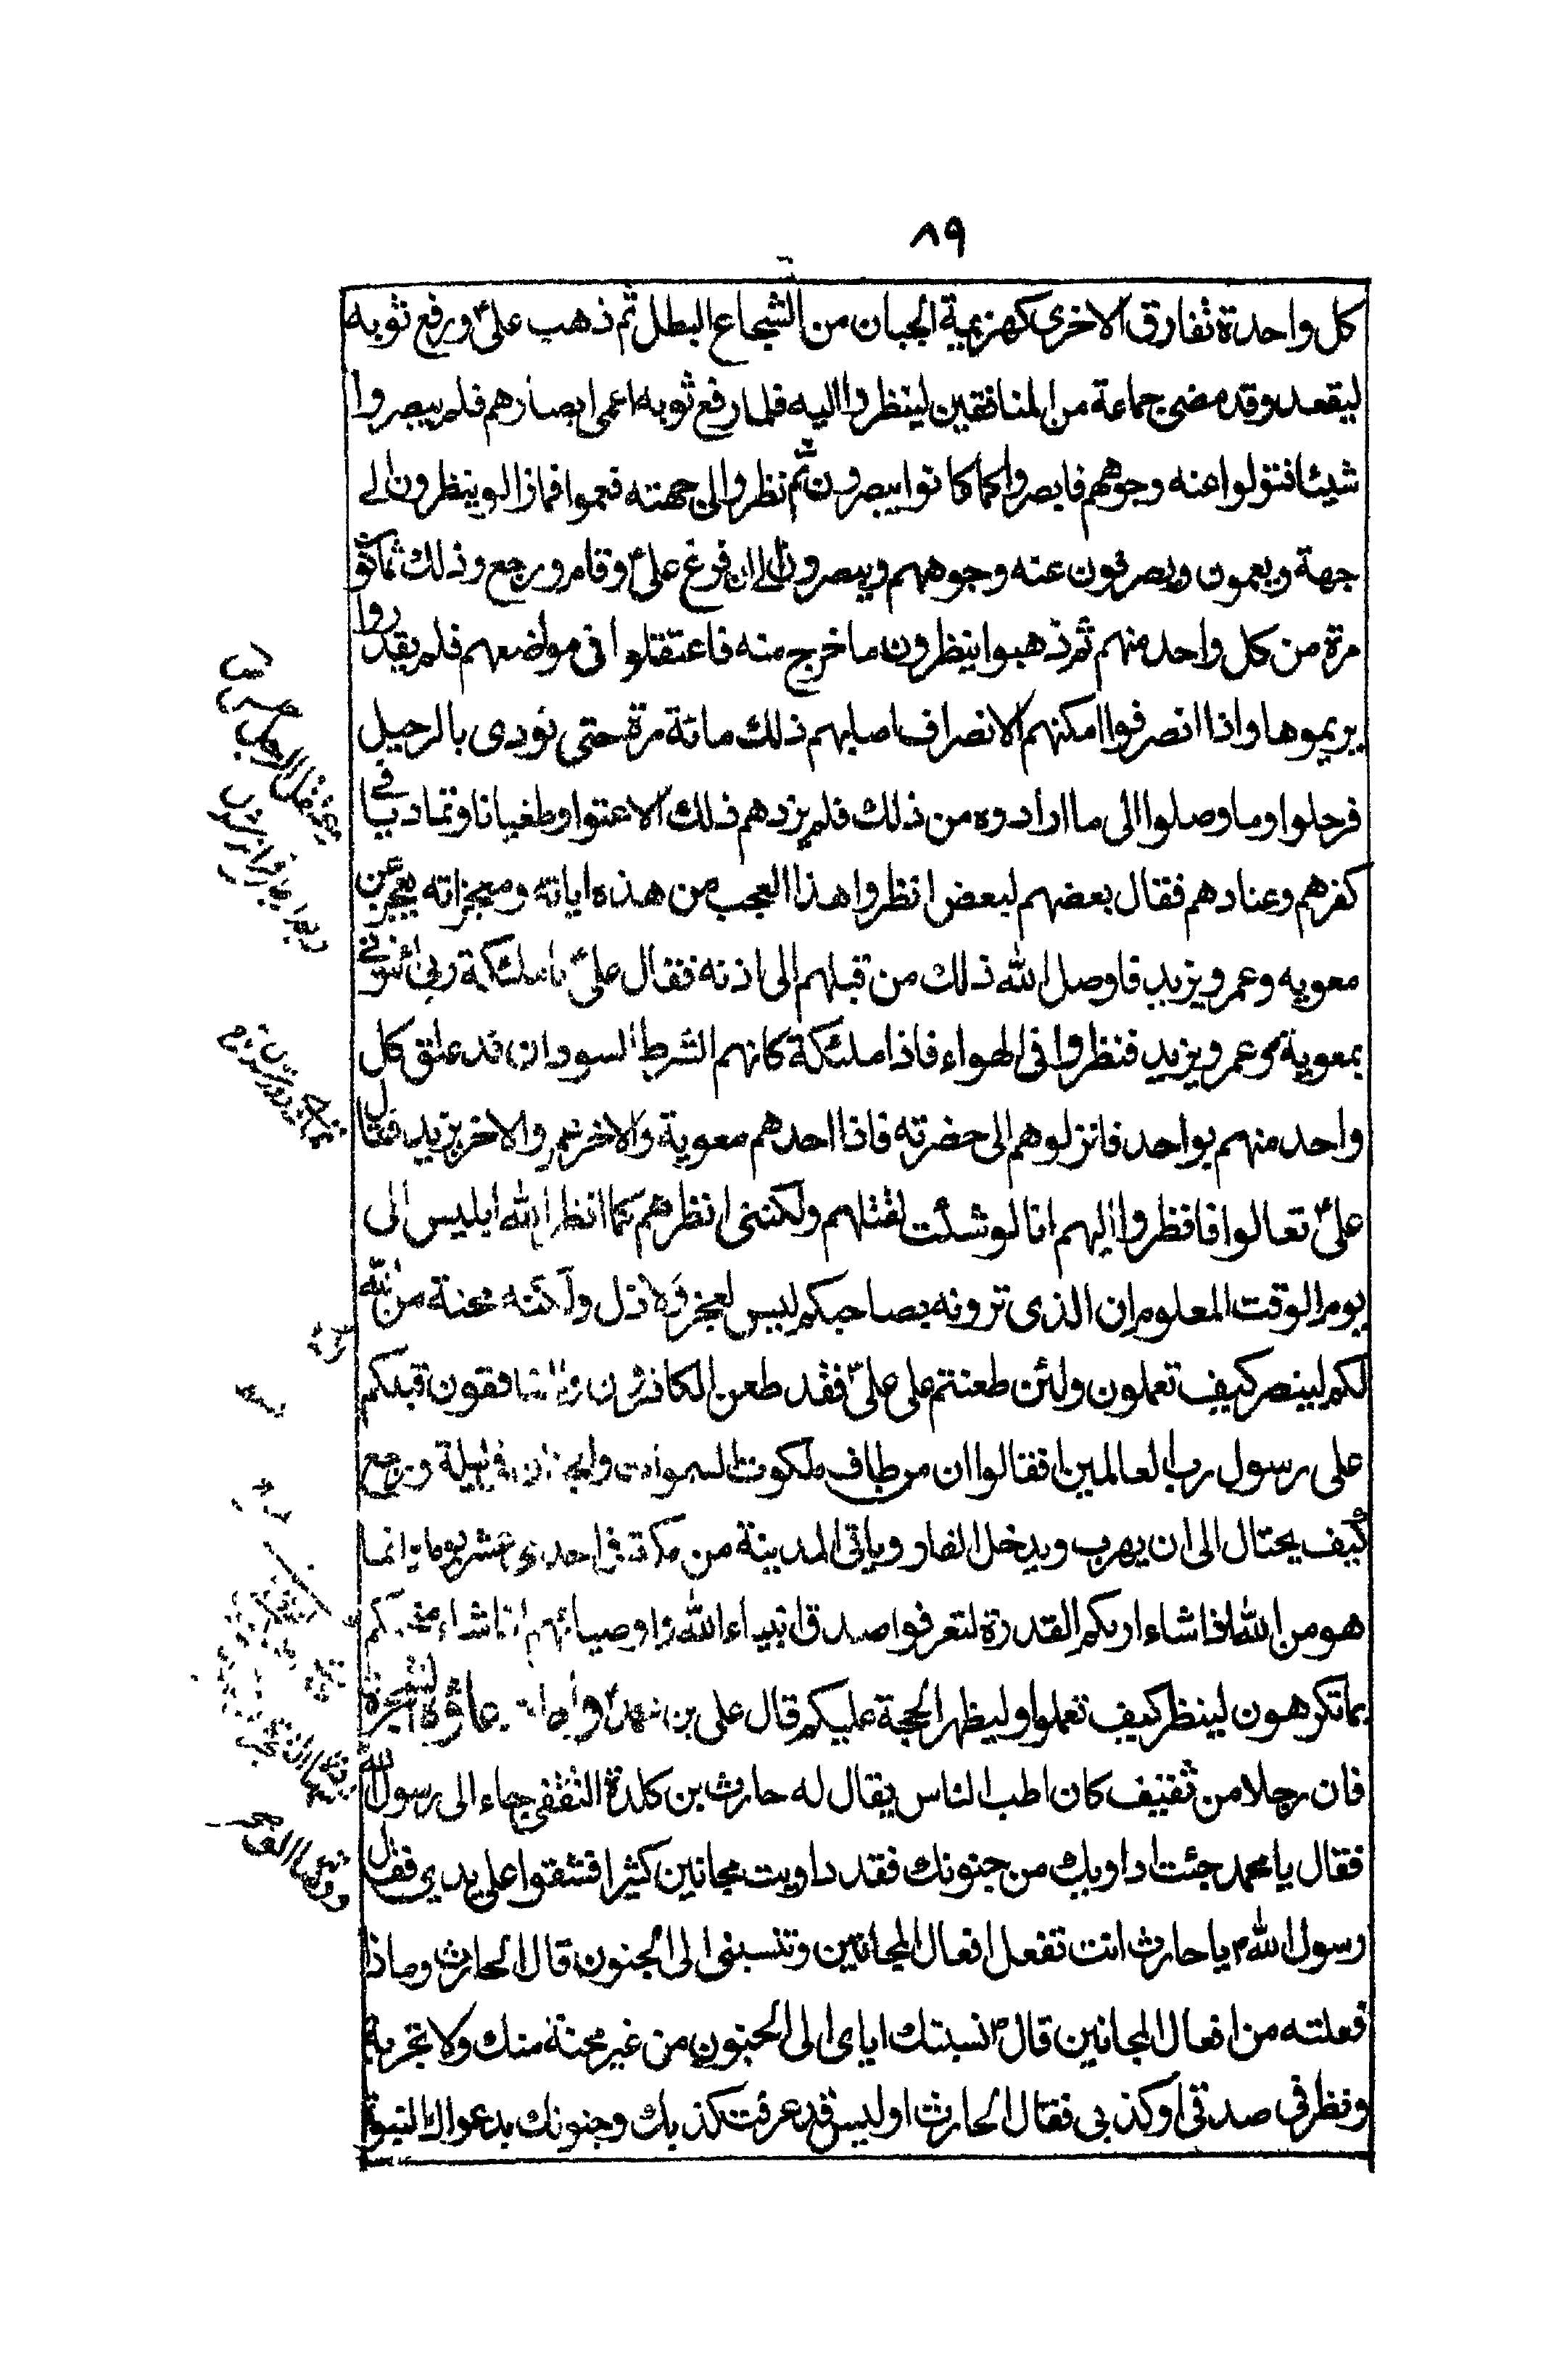 ٨٩
كل واحدة تفارق الاخرى كهزيمة الجبان من الشجاع البطل ثم ذهب علىؑ ورفع ثوبه
ليقعد وقد مضى جماعة من المنافقين لينظروا اليه فلما رفع ثوبه اعمى ابصارهم فلم يبصروا
شيئا فتولوا عنه وجوههم فابصروا كما كانوا يبصرون ثم نظروا الى جهته فعموا فمازالوا ينظرون الى
جهة ويعمون ويصرفون عنه وجوههم ويبصرون الى ان فرغ علىؑ وقام ورجع وذلك ثمانون
مرة من كل واحد منهم ثم ذهبوا ينظرون ما خرج منه فاعتقلوا فى مواضعهم فلم يقدروا
يريموها واذا انصرفوا امكنهم الانصراف اصابهم ذلك مائة مرة حتى نودى بالرحيل
فرحلوا وما وصلوا الى ما ارادوه من ذلك فلم يزدهم ذلك الا عتوا وطغيانا وتماديا فى
كفرهم وعنادهم فقال بعضهم لبعض انظروا هذا العجب من هذه اياته ومعجزاته يعجز عن
معويه وعمر ويزيد فاوصل الله ذلك من قبلهم الى اذنه فقال علىؑ يا ملئكة ربى ائتونى
بمعوية وعمر ويزيد فنظروا فى الهواء فاذا ملئكة كانهم الشرط السودان قد علق كل
واحد منهم بواحد فانزلوهم الى حضرته فاذا احدهم معوية والاخر عمر والاخر يزيد فقال
علىؑ تعالوا فانظروا اليهم انا لو شئت لقتلتهم ولكننى انظرهم كما انظر الله ابليس الى
يوم الوقت المعلوم ان الذى ترونه بصاحبكم ليس لعجز ولا ذل ولكنه محنة من الله
لكم لينصر كيف تعملون ولئن طعنتم على علىؑ فقد طعن الكافرون والمنافقون قبلكم
على رسول رب العالمين فقالوا ان من طاف ملكوت السموات والجنان فى ليلة ورجع
كيف يحتال الى ان يهرب ويدخل الغار وياتى المدينة من مكة فى احدى عشر يوما وانما
هو من الله اذا شاء اريكم القدرة لتعرفوا صدق انبياء الله واوصيائهم واذا شاء امتحنكم
بما تكرهون لينظر كيف تعملوا وليظهر الحجة عليكم قال على بن محمدؑ واما دعاؤه الشجرة
فان رجلا من ثقيف كان اطب الناس يقال له حارث بن كلدة الثقفى جاء الى رسول الله
فقال يا محمد جئت اداويك من جنونك فقد داويت مجانين كثيرا فشفوا على يدى فقال
رسول اللهؐ يا حارث انت تفعل افعال المجانين وتنسبنى الى الجنون قال الحارث وماذا
فعلته من افعال المجانين قالؐ نسبتك اياى الى الجنون من غير محنة منك ولا تجربة
ونظر فى صدقى او كذبى فقال الحارث او ليس قد عرفت كذبك وجنونك بدعواك النبوة